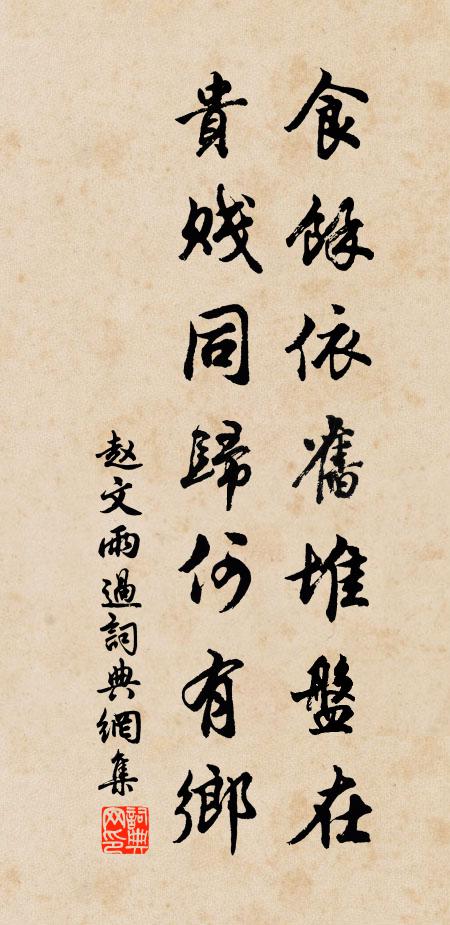 食餘依舊堆盤在
貴賤同歸何有鄉
赵文雨過詞典網集
詞典網印